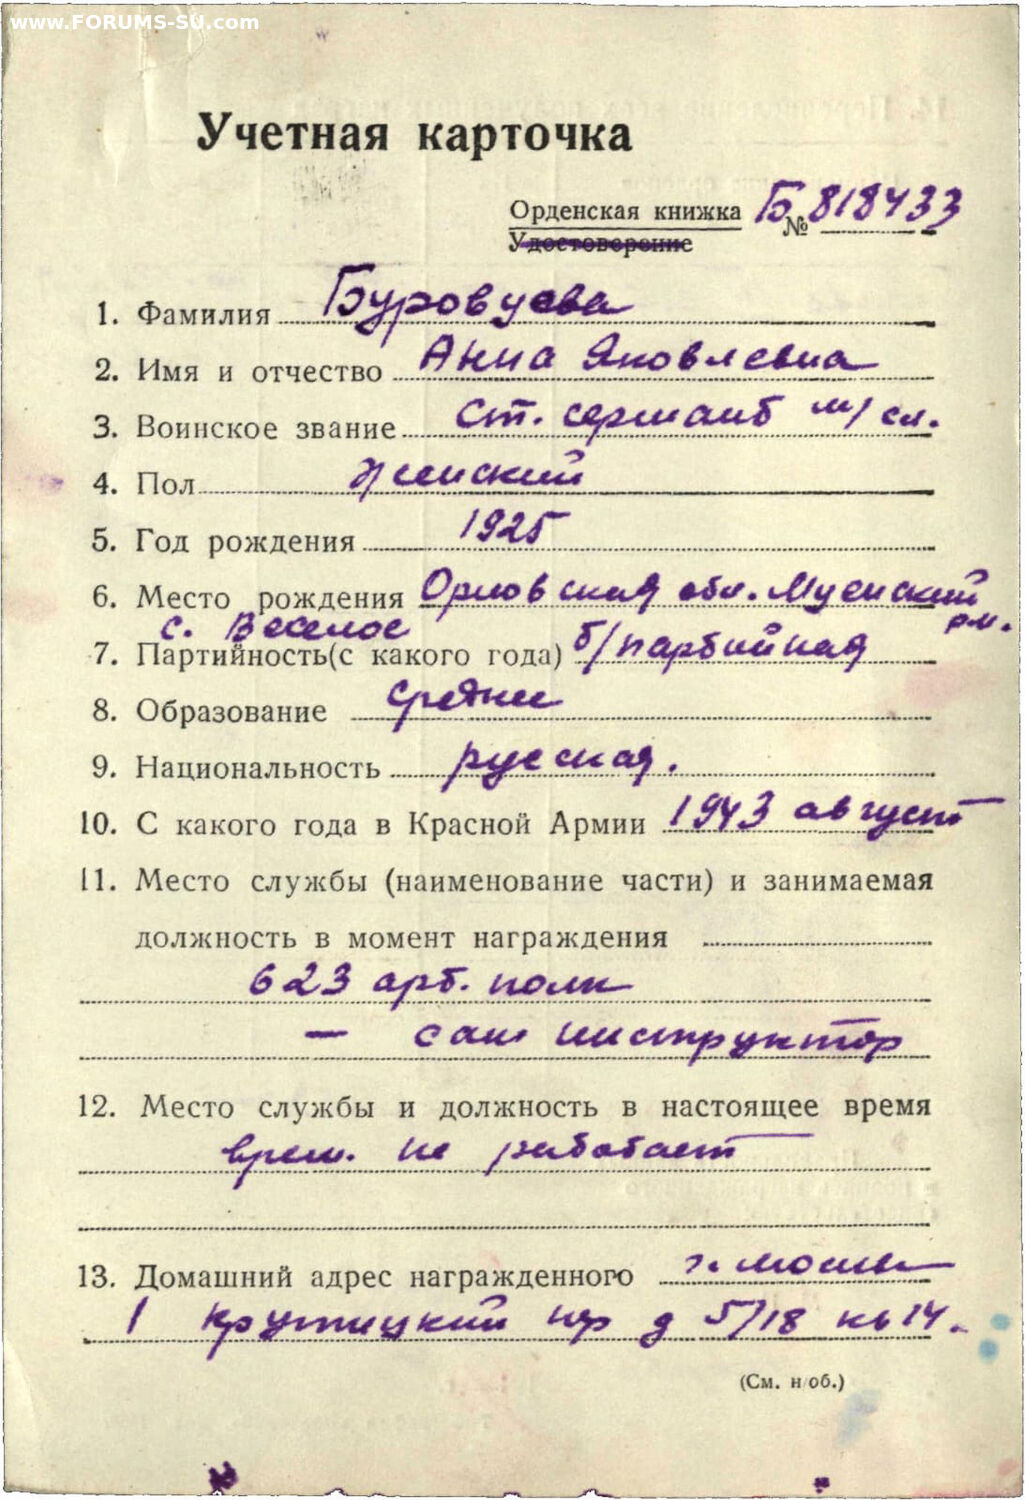 www.FORUMS-SU.com
Учетная карточка
Орденская книжка № Б 818433
Удостоверение
1. Фамилия
2. Имя и отчество Анна Яковлевна
3. Воинское звание Ст. сержант м/сл.
4. Пол женский
5. Год рождения 1925
6. Место рождения Орловская обл. Мценский
с. Веселое рн.
7. Партийность(с какого года) б/партийная
8. Образование среднее
9. Национальность русская.
10. С какого года в Красной Армии 1943 август
11. Место службы (наименование части) и занимаемая
должность в момент награждения
623 арт. полк
– сан инструктор
12. Место службы и должность в настоящее время
врем. не работает
13. Домашний адрес награжденного г. Москва
1 Крутицкий пер д 5/18 кв 14.
(См. н/об.)